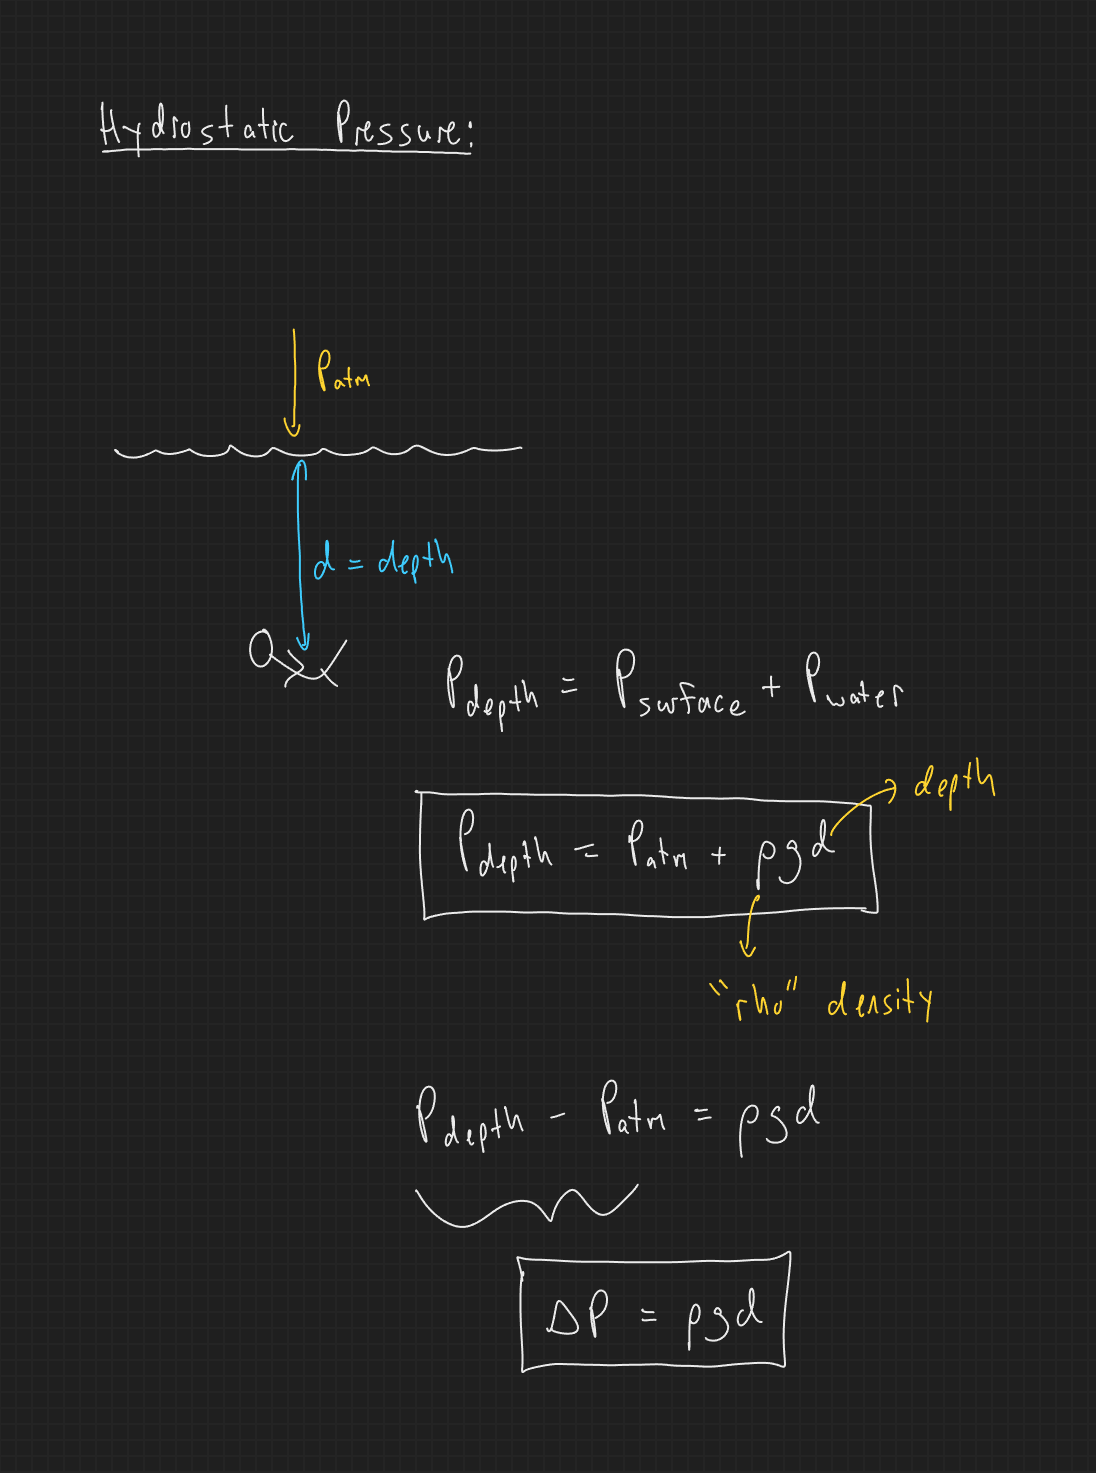 Hydrostatic Pressure:
Patm
d = depth
Pdepth = Psurface + Pwater
depth
Pdepth = Patm + ρgd
"rho" density
Pdepth - Patm = ρgd
ΔP = ρgd